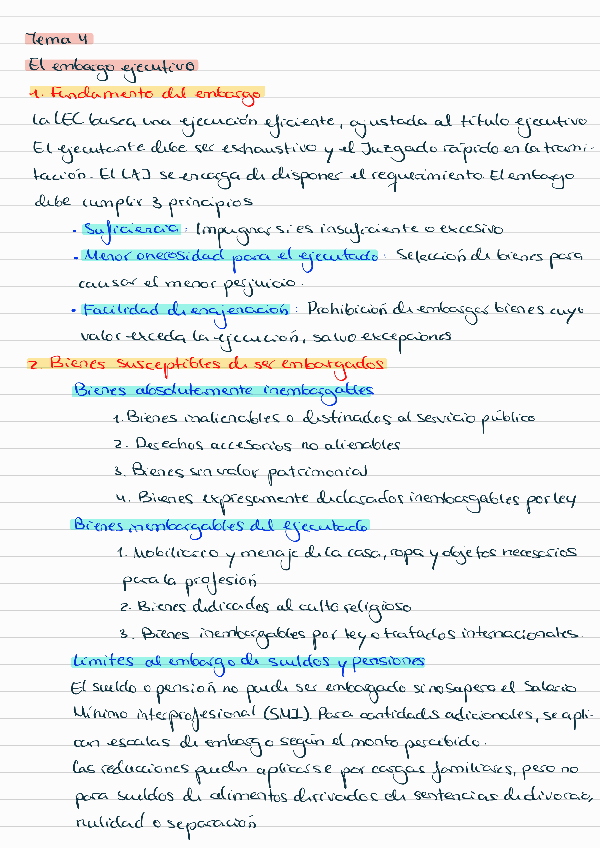 Tema 4
El embargo ejecutivo
1. Fundamento del embargo
La LEC busca una ejecución eficiente, ajustada al título ejecutivo
El ejecutante debe ser exhaustivo y el Juzgado rápido en la trami-
tación. El LAJ se encarga de disponer el requerimiento. El embargo
debe cumplir 3 principios
· Suficiencia: Impugnar si es insuficiente o excesivo
· Menor onerosidad para el ejecutado: Selección de bienes para
causar el menor perjuicio.
· Facilidad de enajenación: Prohibición de embargar bienes cuyo
valor exceda la ejecución, salvo excepciones
2. Bienes susceptibles de ser embargados
Bienes absolutamente inembargables
1. Bienes inalienables o destinados al servicio público
2. Derechos accesorios no alienables
3. Bienes sin valor patrimonial
4. Bienes expresamente declarados inembargables por ley
Bienes inembargables del ejecutado
1. Mobiliario y menaje de la casa, ropa y objetos necesarios
para la profesión
2. Bienes dedicados al culto religioso
3. Bienes inembargables por ley o tratados internacionales.
Límites al embargo de sueldos y pensiones
El sueldo o pensión no puede ser embargado si no supera el Salario
Mínimo interprofesional (SMI). Para cantidades adicionales, se apli-
can escalas de embargo según el monto percibido.
Las reducciones pueden aplicarse por cargas familiares, pero no
para sueldos de alimentos derivados de sentencias de divorcio,
nulidad o separación